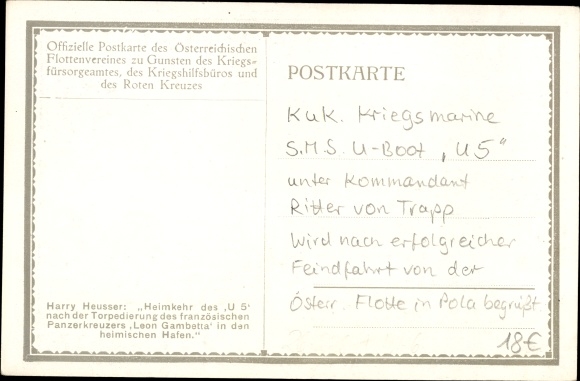 Offizielle Postkarte des Österreichischen
Flottenvereines zu Gunsten des Kriegs-
fürsorgeamtes, des Kriegshilfsbüros und
des Roten Kreuzes
Harry Heusser: „Heimkehr des ‚U 5‘
nach der Torpedierung des französischen
Panzerkreuzers ‚Leon Gambetta‘ in den
heimischen Hafen.“
POSTKARTE
KuK. Kriegsmarine
S.M.S. U-Boot „U 5"
unter Kommandant
Ritter von Trapp
wird nach erfolgreicher
Feindfahrt von der
Österr. Flotte in Pola begrüßt
18€